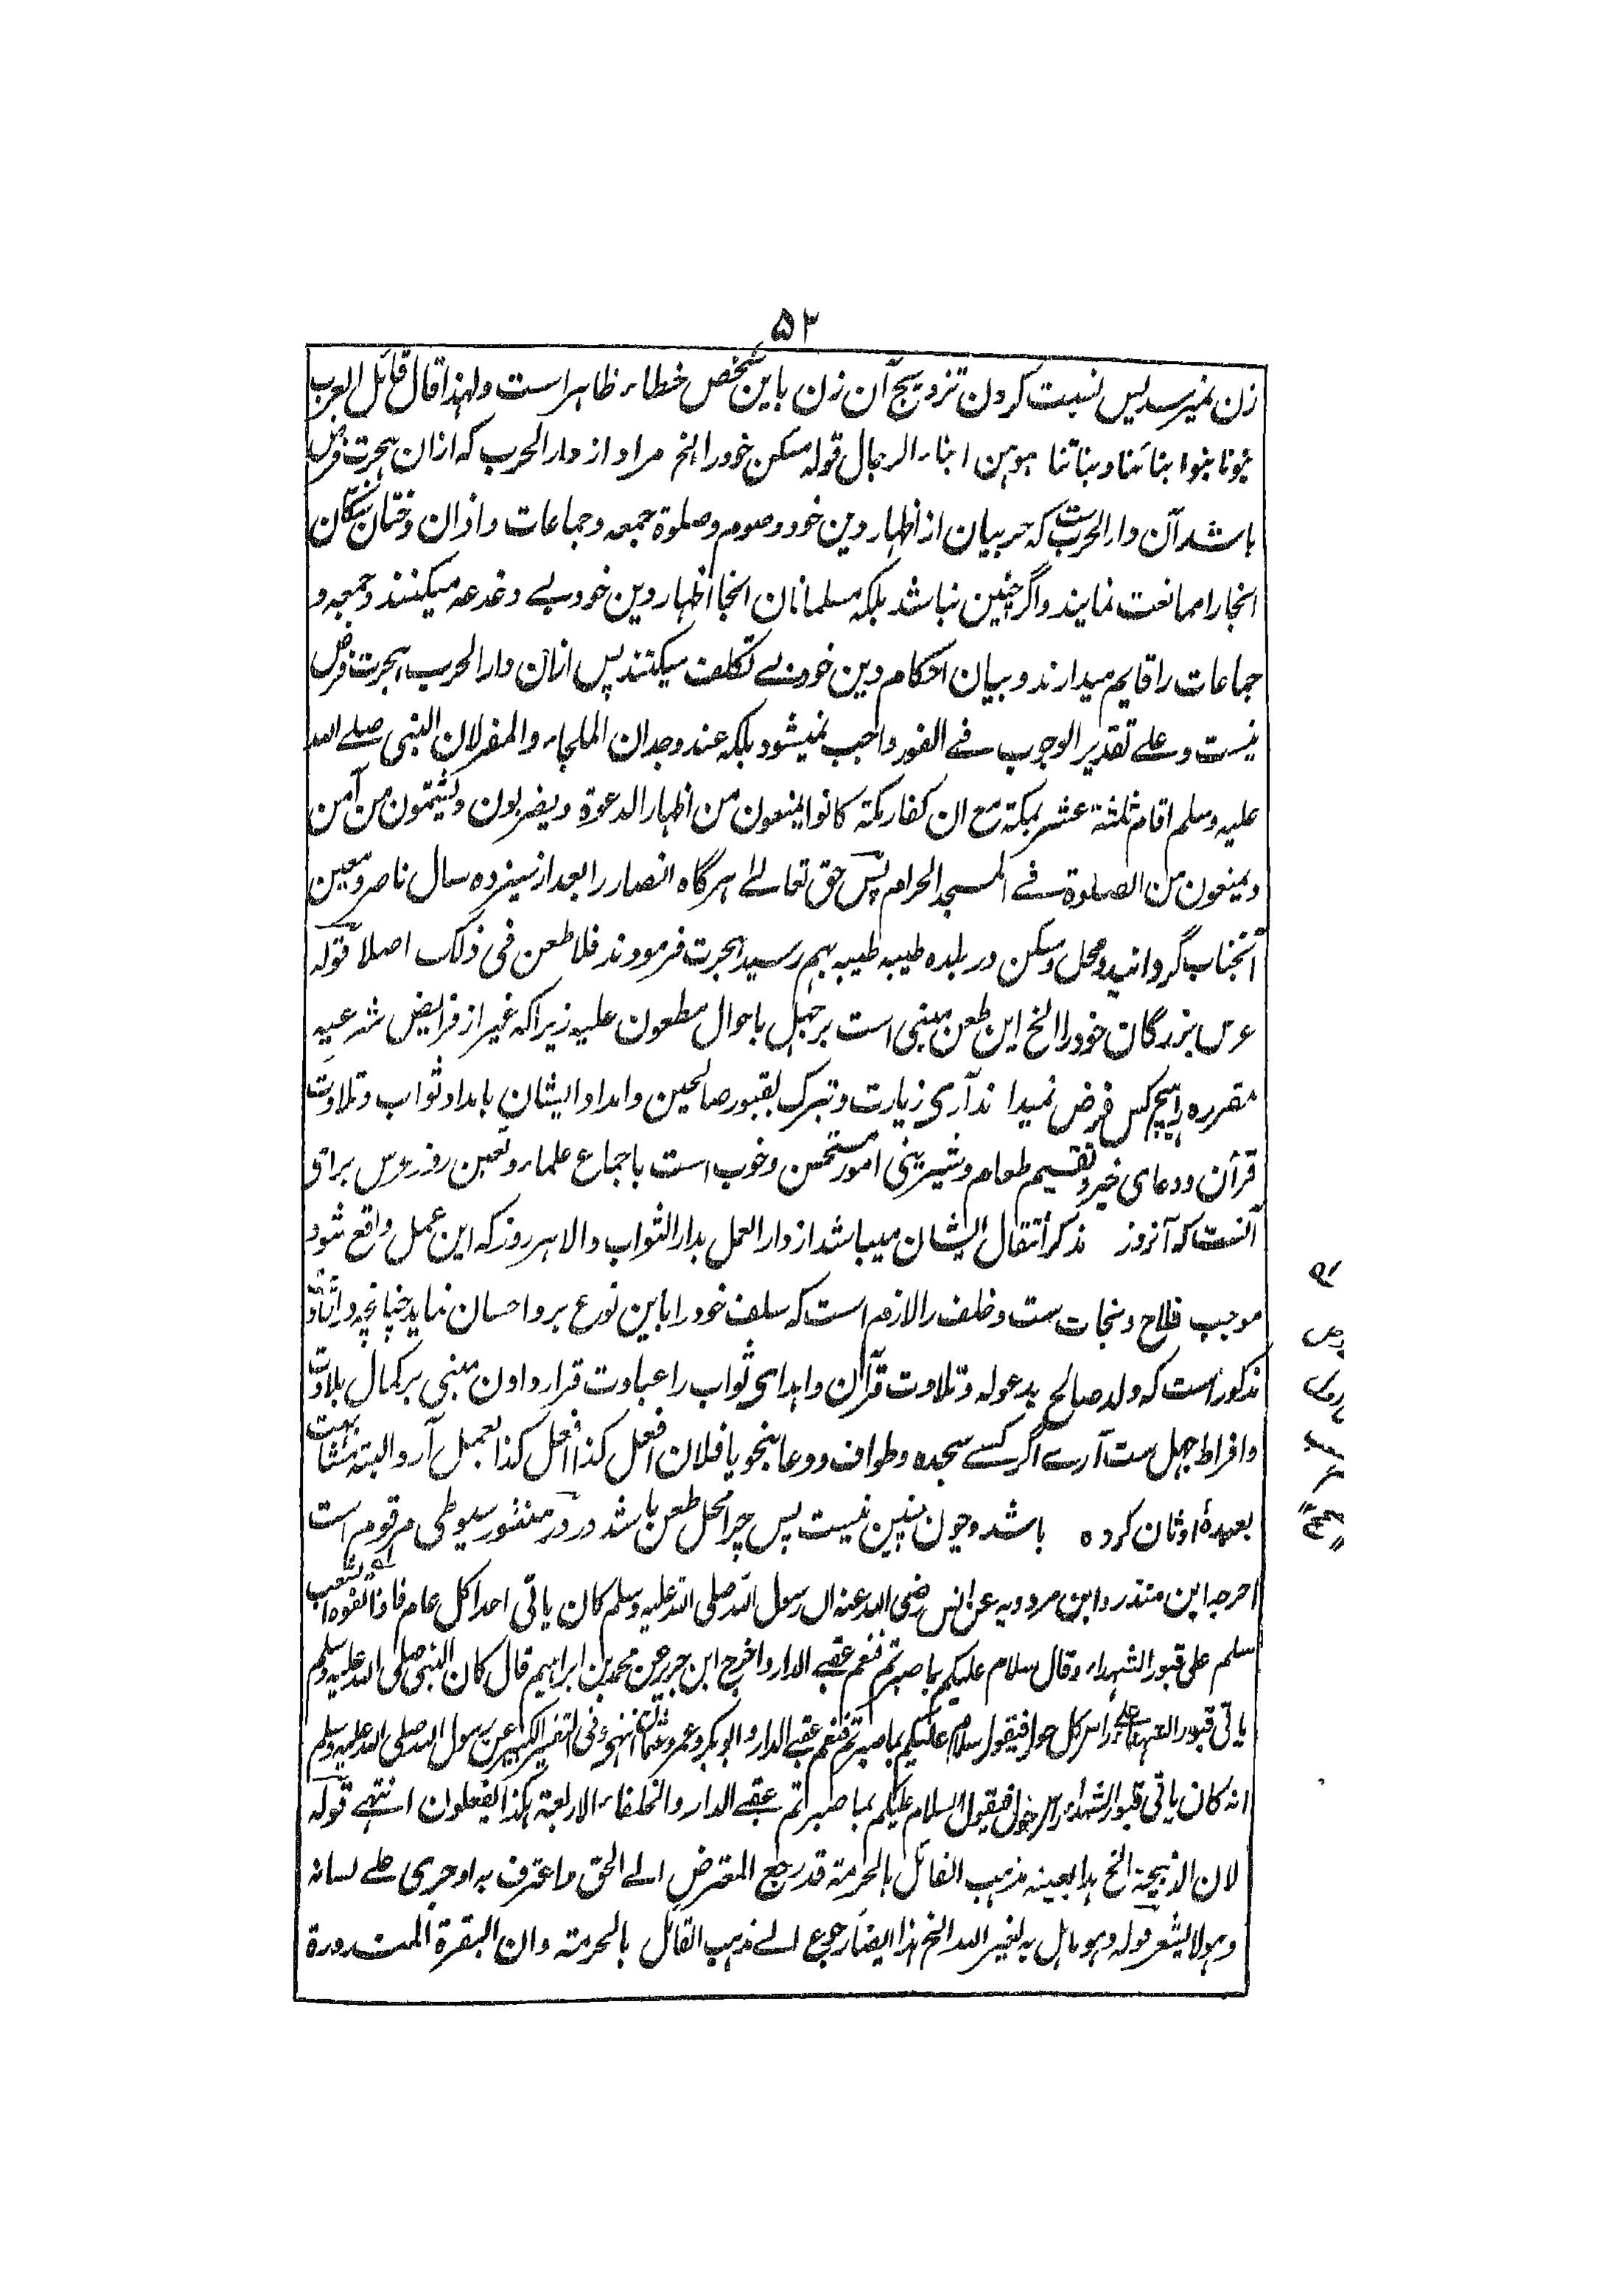 ۵۲
زن نمیرسد پس نسبت کردن تزویج آن زن باین شخص خطاء ظاهر است ولهذا قال قائل العرب
بنونا بنوا ابنائنا وبناتنا بنوهن ابناء الرجال قوله مسکن خود را الخ مراد از دار الحرب که ازان هجرت فرض
باشد آن دار الحرب ست که حربیان از اظهار دین خود و صوم و صلوة جمعه و جماعات و اذان و ختان
انجا را ممانعت نمایند و اگر چنین نباشد بلکه مسلمانان انجا اظهار دین خود بے دغدغه میکنند و جمعه و
جماعات را قایم میدارند و بیان احکام دین خود بے تکلف میکنند پس ازان دار الحرب هجرت فرض
نیست و علے تقدیر الوجوب فے الفور واجب نمیشود بلکه عند وجدان الملجاء والمفر لان النبی صلے الله
علیه وسلم اقام ثلثة عشر بمکة مع ان کفار مکة کانوا یمنعون من اظهار الدعوة ویضربون ویشتمون من آمن
ویمنعون من الصلوة فے المسجد الحرام پس حق تعالے هرگاه انصار را بعد از سیزده سال ناصر و معین
آنجناب گردانید و محل و مسکن در بلده طیبه طیبه بهم رسید هجرت فرمودند فلا طعن فی ذلک اصلا قوله
عرس بزرگان خود را الخ این طعن مبنی است بر جهل باحوال مطعون علیه زیرا که غیر از فرایض شرعیه
مقرره را هیچکس فرض نمیداند آری زیارت و تبرک بقبور صالحین و امداد ایشان بامداد ثواب و تلاوت
قرآن و دعای خیر و تقسیم طعام و شیرینی امور مستحسن و خوب است باجماع علماء و تعین روز عرس برای
آنست که آنروز مذکر انتقال ایشان میباشد از دار العمل بدار الثواب والا هر روز که این عمل واقع شود
موجب فلاح و نجات ست و خلف را لازم است که سلف خود را باین نوع بر و احسان نماید چنانچه در
مذکور است که ولد صالح یدعوله و تلاوت قرآن و اهدای ثواب را عبادت قرار دادن مبنی بر کمال بلادت
و افراط جهل ست آرے اگر کسے سجده و طواف و دعا بنحو یا فلان افعل کذا افعل کذا بعمل آرد البته مشابهت
بعبدهٔ اوثان کرده باشد و چون چنین نیست پس چرا محل طعن باشد در در منثور سیوطی مرقوم است
اخرجه ابن منذر وابن مردویه عن انس رضی الله عنه ان رسول الله صلی الله علیه وسلم کان یاتی احدا کل عام فاذا تفوه الشعب
سلم علی قبور الشهداء وقال سلام علیکم بما صبرتم فنعم عقبے الدار واخرج ابن جریر عن محمد بن ابراهیم قال کان النبی صلی الله علیه وسلم
یاتی قبور الشهداء علی راس کل حول فیقول سلام علیکم بما صبرتم فنعم عقبے الدار وابو بکر وعمر وعثمان انتهی وفی التفسیر الکبیر عن رسول الله صلی الله علیه وسلم
انه کان یاتی قبور الشهداء راس کل حول فیقول السلام علیکم بما صبرتم عقبے الدار والخلفاء الاربعة هکذا یفعلون انتهے قوله
لان الذبیحة الخ هذا بعینه مذهب القائل بالحرمة قد رجع المعترض الے الحق واعترف به او جری علے لسانه
وهو لا یشعر قوله وهو ما اهل به لغیر الله الخ هذا ایضا رجوع الے مذهب القائل بالحرمة وان البقرة المنذورة